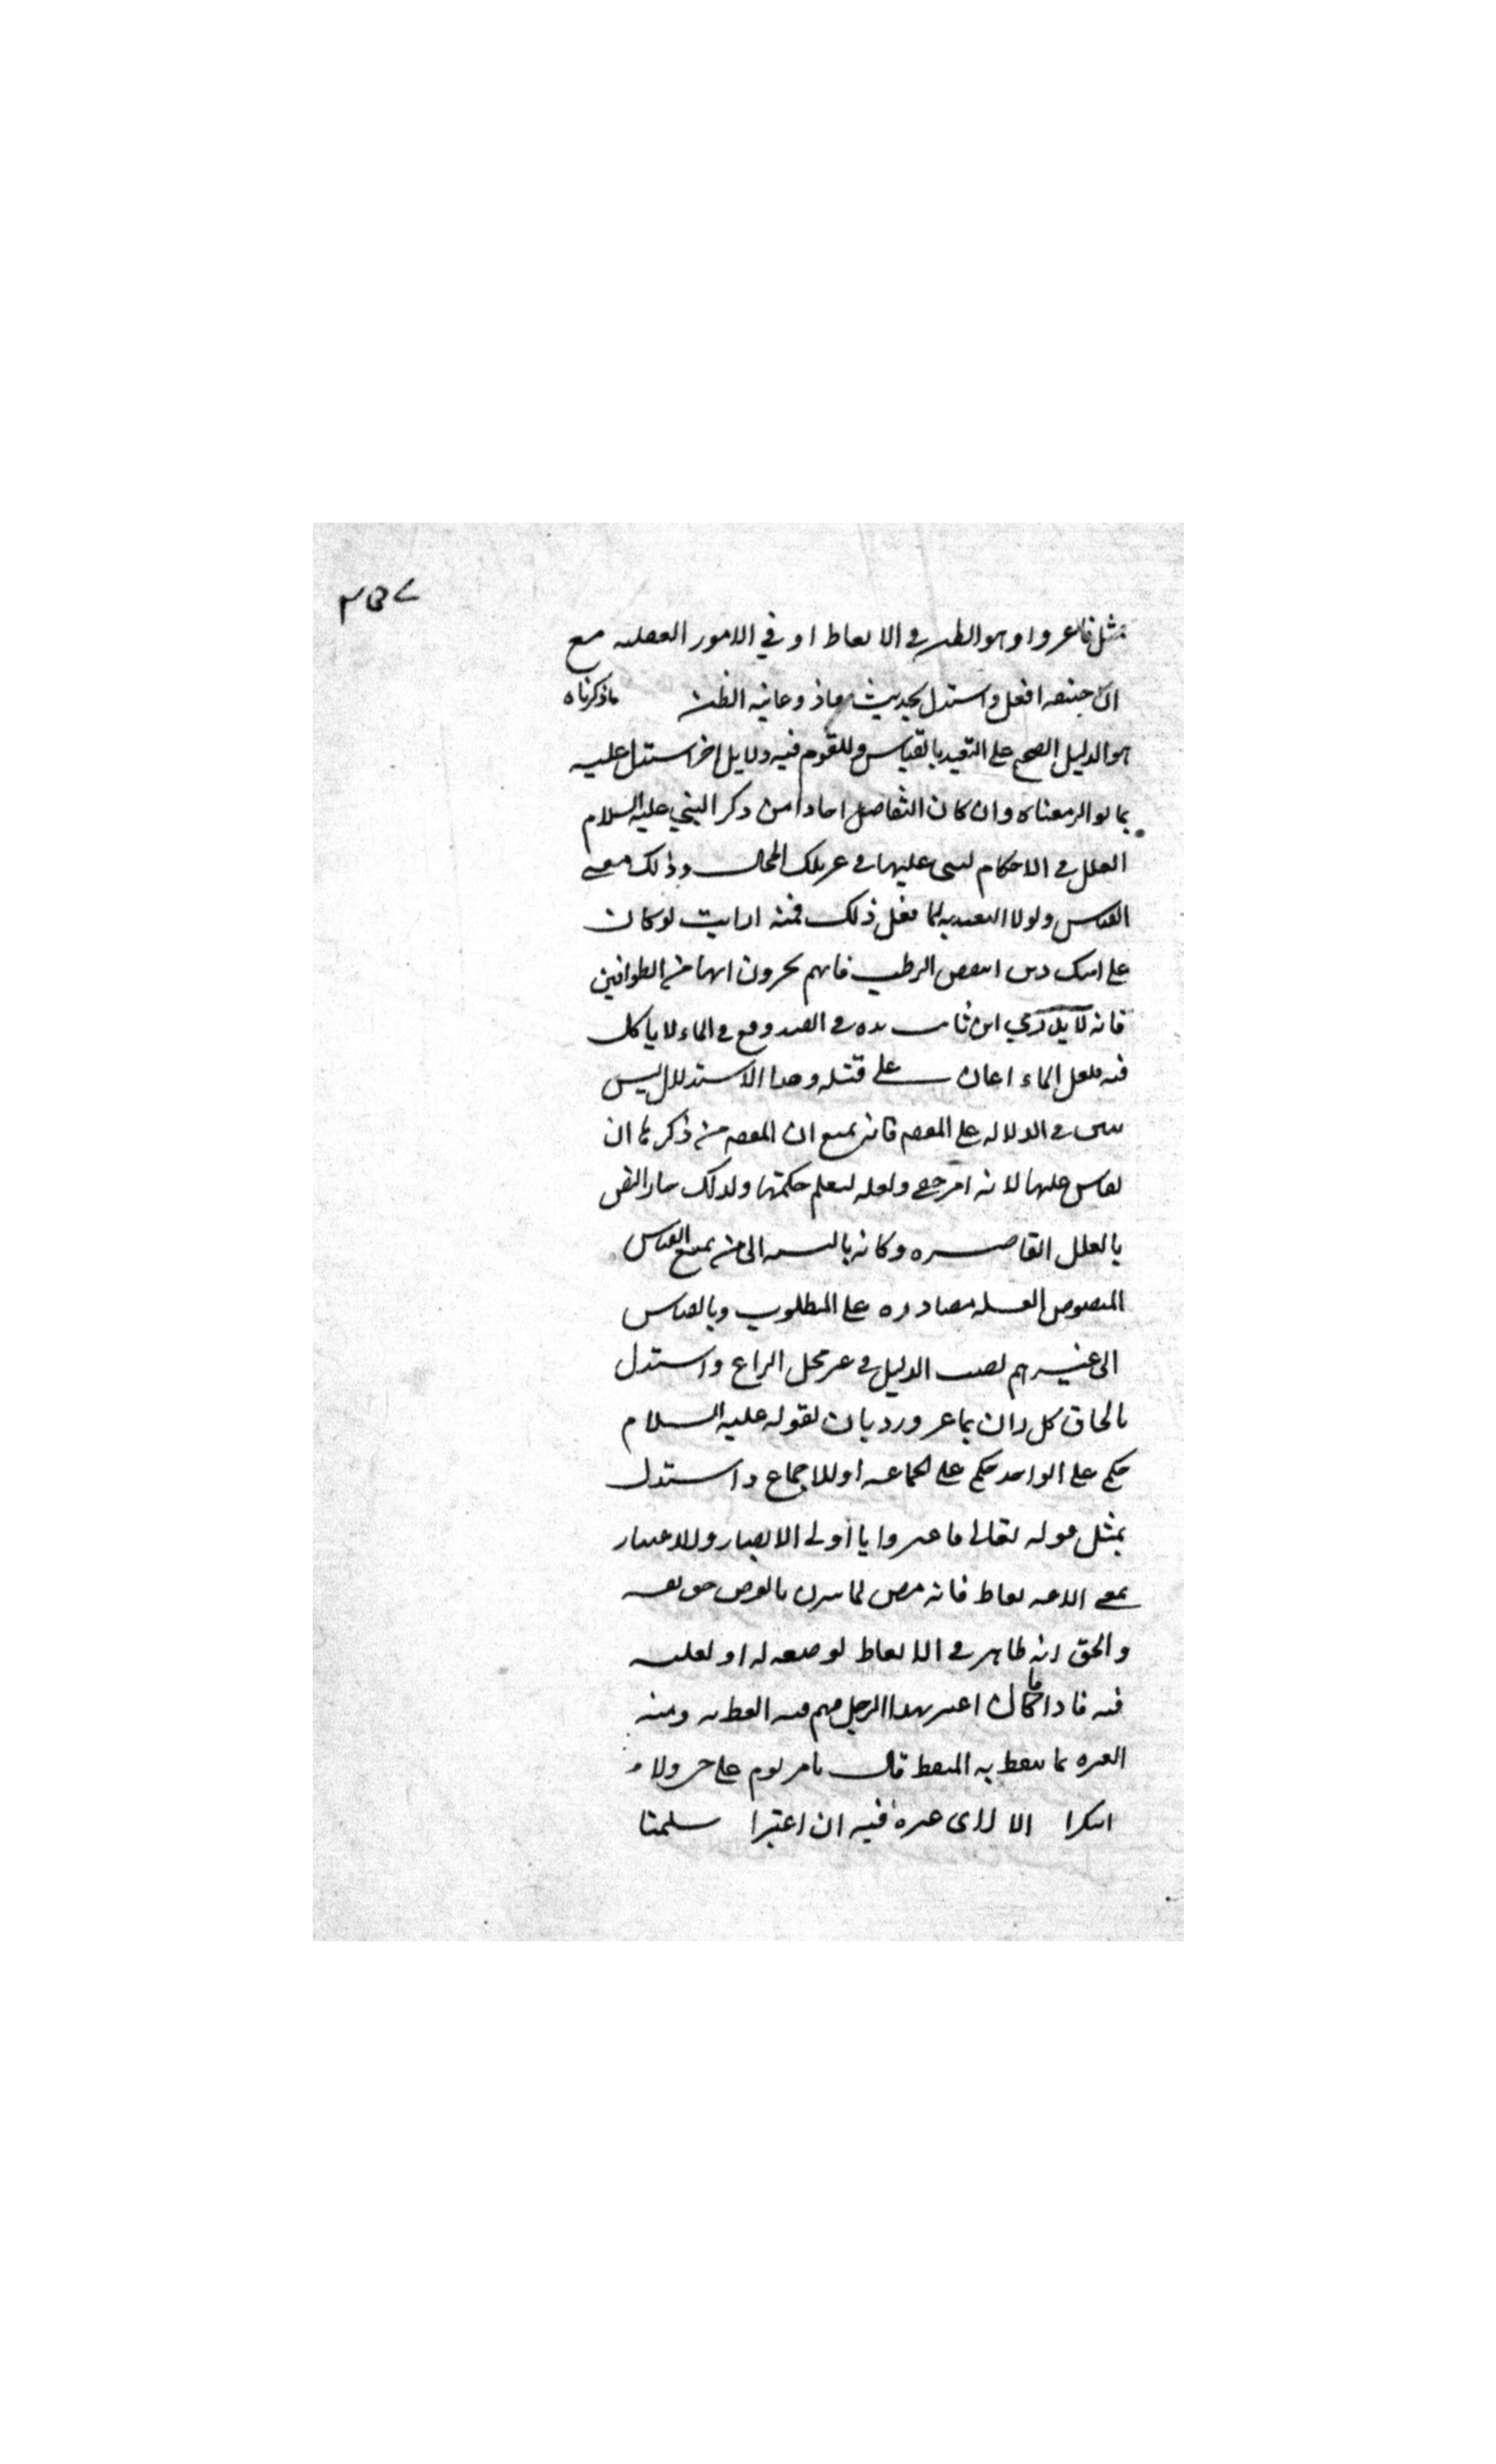 ٣٥٧
مثل فاعبروا وهو الظاهر في الاتعاظ او في الامور العقليه مع
ان صيغه افعل واستدل بحديث معاذ وغايته الظن ماذكرناه
هو الدليل الصحيح على التعبد بالقياس وللقوم فيه دلايل اخر استدل عليه
بما تواتر معناه وان كان التفاصيل احادا من ذكر النبي عليه السلام
العلل في الاحكام ليبنى عليها في غير تلك المحال وذلك معنى
القياس ولولا التعبد به لما فعل ذلك فمنه ارايت لو كان
على ابيك دين اينقص الرطب فانهم يحشرون انها من الطوافين
فانه لا يدري اين باتت يده في الصيد وقع في الماء لا ياكل
منه لعل الماء اعان على قتله وهذا الاستدلال ليس
في الدلاله على فانه يمنع ان من ذكرها ان
يقاس عليها لانه امر خفي ولعله ليعلم حكمتها ولذلك جاز النص
بالعلل القاصره وكانه بالنسبه الى من يمنع القياس
المنصوص العله مصادره على المطلوب وبالقياس
الى غيرهم نصب الدليل في غير محل النزاع واستدل
بالحاق كل زان بماعز ورد بان لقوله عليه السلام
حكمي على الواحد حكمي على الجماعه او للاجماع واستدل
بمثل قوله تعالى فاعتبروا يا اولى الابصار والاعتبار
بمعنى
والحق انه ظاهر في الاتعاظ لوضعه له او لغلبته
فيه فاذا قال اعتبر بهذا الرجل فهم منه العظه ومنه
العبره ما يتعظ به المتعظ قال ما مر يوم على حي ولا
ابتكرا الا راى عبره فيه ان اعتبرا سلمنا